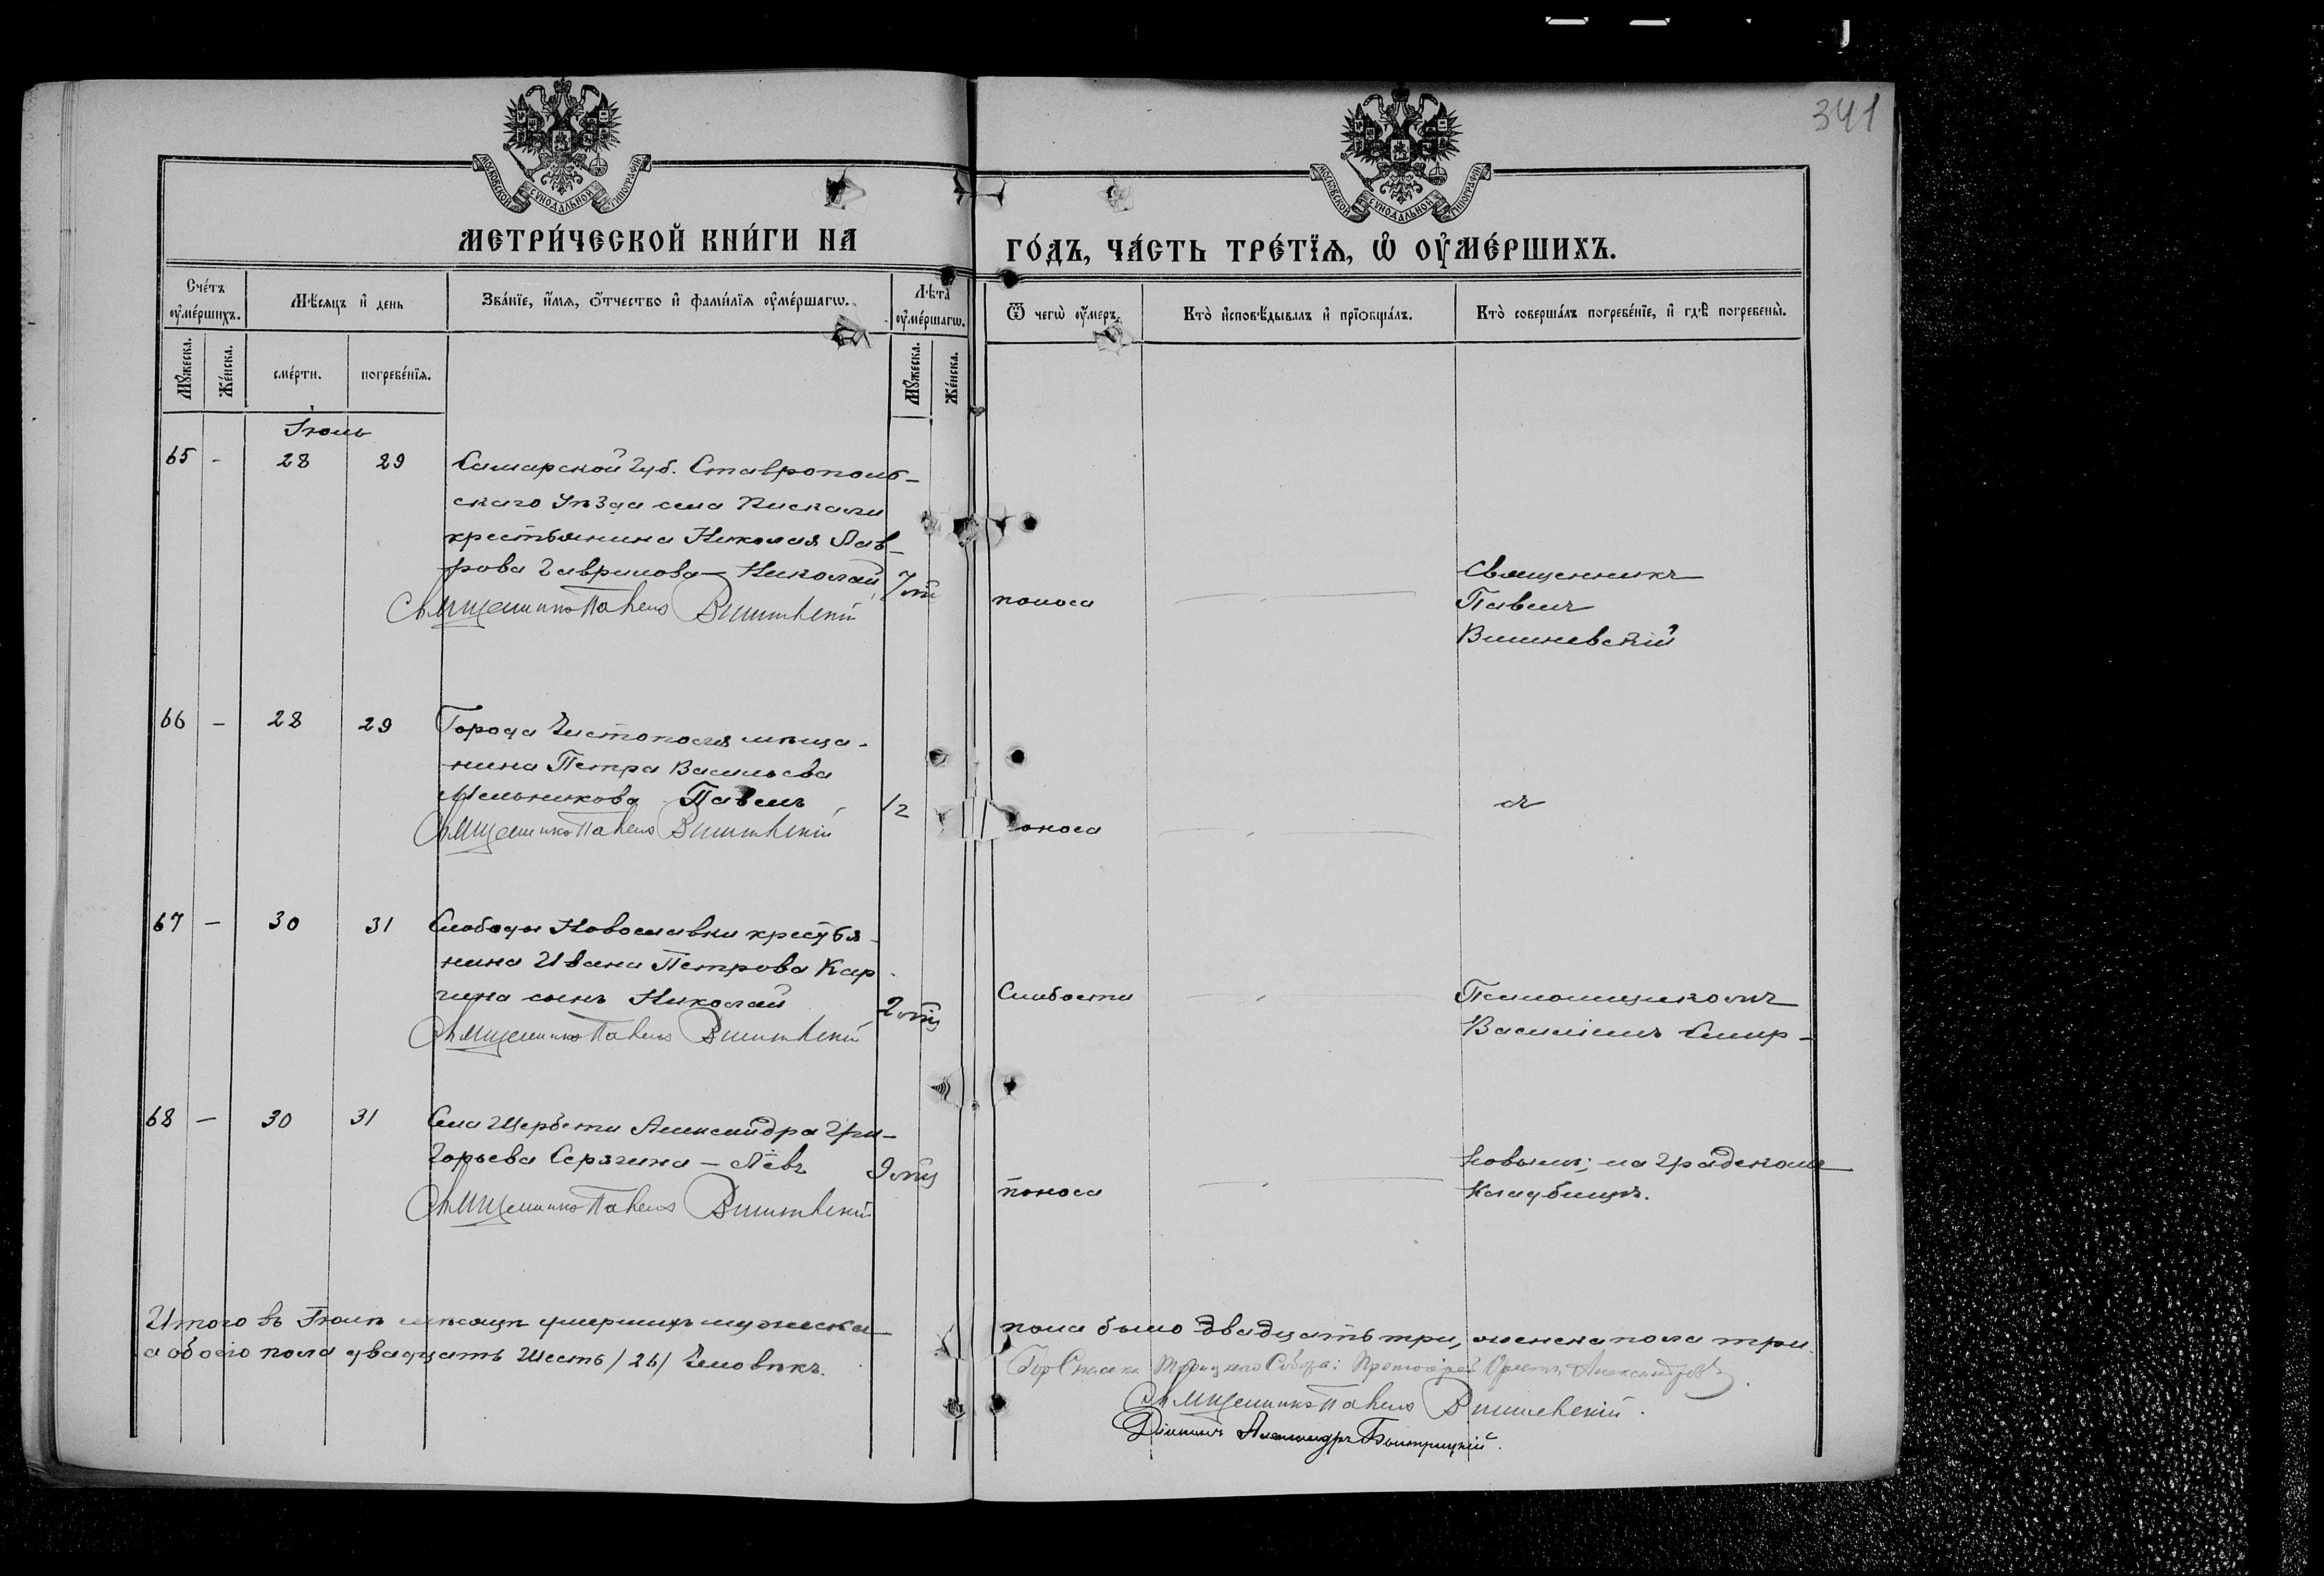 341
МОСКОВСКОЙ СУНОДАЛЬНОЙ ТИПОГРАФІИ
МОСКОВСКОЙ СУНОДАЛЬНОЙ ТИПОГРАФІИ
МЕТРИ́ЧЕСКОЙ КНИ́ГИ НА
ГО́ДЪ, ЧА́СТЬ ТРЕ́ТЇѦ, Ѡ҆ ОУ҆МЕ́РШИХЪ.
Сче́тъ оу҆ме́ршихъ.
Мѣ́сяцъ и҆ день
Зва́нїе, и҆́мѧ, ѻ҆́тчество и҆ фами́лїѧ оу҆ме́ршагѡ.
Лѣ̀та оу҆ме́ршагѡ.
Ѿ чегѡ̀ оу҆́меръ.
Кто̀ и҆сповѣ́дывалъ и҆ прїѻбща́лъ.
Кто̀ соверша́лъ погребе́нїе, и҆ гдѣ̀ погребены̀.
Мꙋ́жеска.
Же́нска.
сме́рти.
погребе́нїѧ.
Мꙋ́жеска.
Же́нска.
Іюль
65 - 28 29 Самарской губ. Ставрополь-
скаго уѣзда села Пискалы
крестьянина Николая Лав-
рова Гаврилова - Николай, 7
Священникъ Павелъ Вишневскій
поноса
Священникъ
Павелъ
Вишневскій
66 - 28 29 Города Чистополя мѣща-
нина Петра Васильева
Мельникова Павелъ, 1/2
Священникъ Павелъ Вишневскій
поноса
67 - 30 31 Слободы Новославки крестья-
нина Ивана Петрова Кар-
гина сынъ Николай 2
Священникъ Павелъ Вишневскій
Слабости
Псаломщикомъ
Василіемъ Смир-
68 - 30 31 Села Щербети Александра Гри-
горьева Серягина - Левъ 9
Священникъ Павелъ Вишневскій
поноса
новымъ; на градскомъ
кладбищѣ.
Итого въ Іюлѣ мѣсяцѣ умершихъ мужеска
пола было двадцать три, женска пола три
а обоего пола двадцать шесть /26/ человѣкъ.
Гор. Спасска Троицкаго Собора: Протоіерей Орестъ Александровъ.
Священникъ Павелъ Вишневскій.
Діаконъ Александръ Быстрицкій.